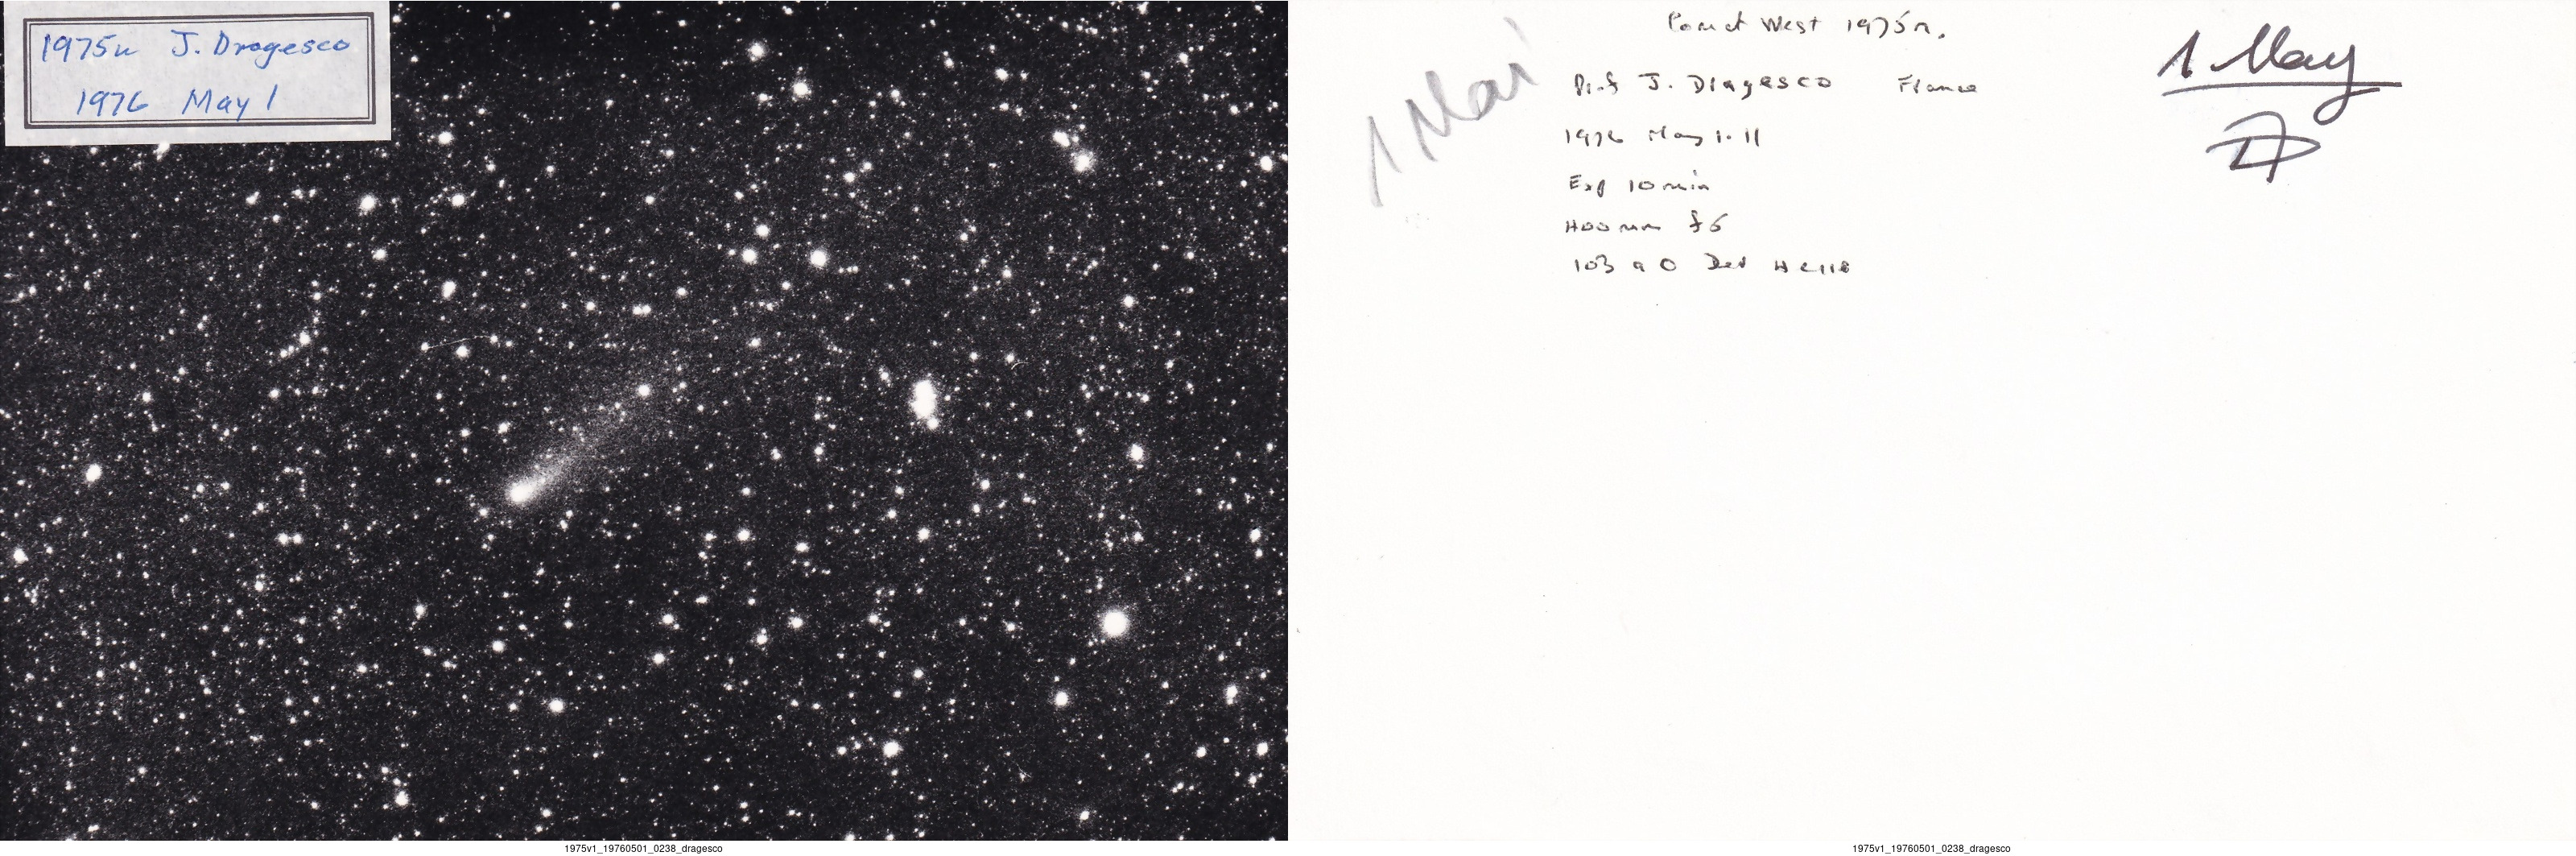 1975n J. Dragesco
1976 May 1
1 Mai
Comet West 1975n.
Prof J. Dragesco France
1976 May 1.11
Exp 10 min
400 mm f6
103 a O Dev
1 May
1975v1_19760501_0238_dragesco
1975v1_19760501_0238_dragesco